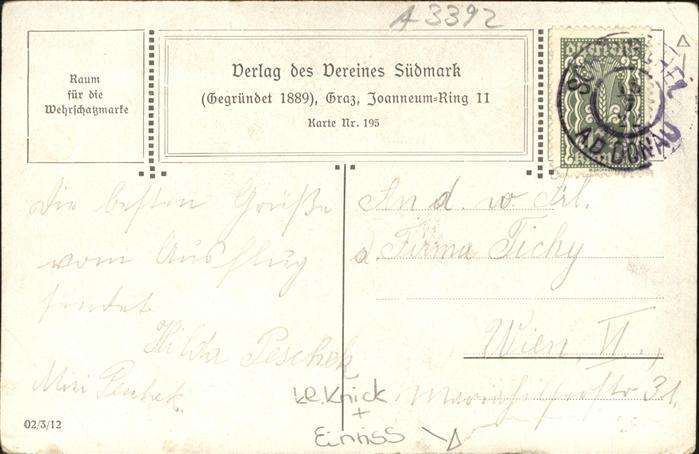 A 3392
Raum
für die
Wehrschatzmarke
Verlag des Vereines Südmark
(Gegründet 1889), Graz, Joanneum-Ring 11
Karte Nr. 195
A.D. DONAU
Die besten Grüße
vom Ausflug
sendet
Hilda Peschek
Mizi
An d. w Frl.
Firma Tichy
Wien, VI.,
31.
l.e. Knick
+
Einriss
02/3/12